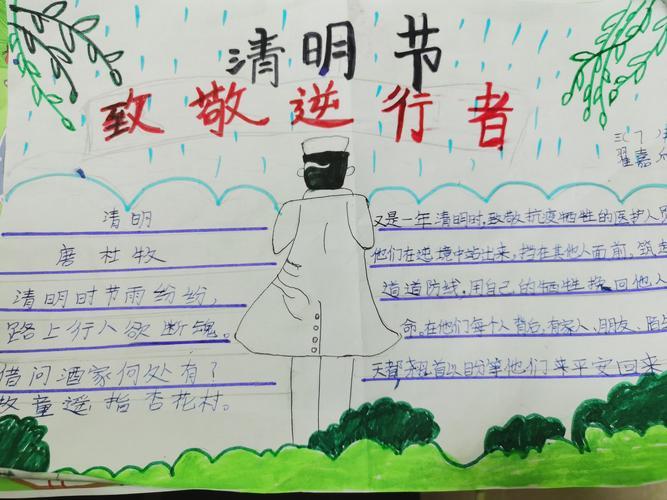 清明节
致敬逆行者
三(7)
翟嘉
清明
唐杜牧
清明时节雨纷纷,
路上行人欲断魂。
借问酒家何处有?
牧童遥指杏花村。
又是一年清明时,致敬抗疫牺牲的医护人员
他们在逆境中站出来,挡在其他人面前,筑起
道道防线,用自己的牺牲换回他人
命。在他们每个人背后,有家人、朋友、陌
天都翘首以盼等他们来平安回来